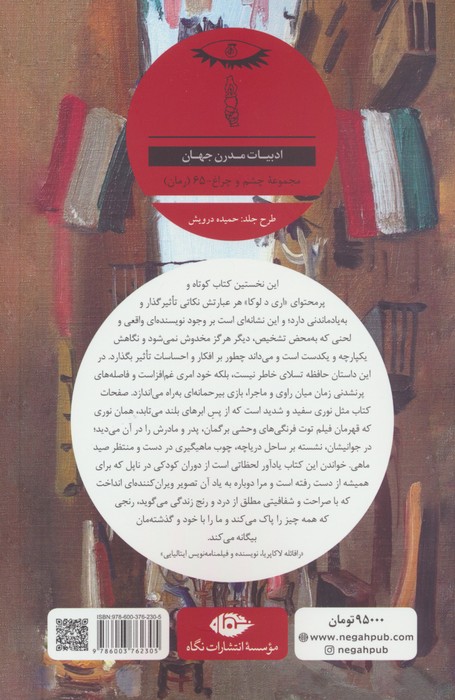 ادبیات مدرن جهان
مجموعهٔ چشم و چراغ-۶۵ (رمان)
طرح جلد: حمیده درویش
این نخستین کتاب کوتاه و
پرمحتوای «اری د لوکا» هر عبارتش نکاتی تأثیرگذار و
به‌یادماندنی دارد؛ و این نشانه‌ای است بر وجود نویسنده‌ای واقعی و
لحنی که به‌محض تشخیص، دیگر هرگز مخدوش نمی‌شود و نگاهش
یکپارچه و یکدست است و می‌داند چطور بر افکار و احساسات تأثیر بگذارد. در
این داستان حافظه تسلای خاطر نیست، بلکه خود امری غم‌افزاست و فاصله‌های
پرنشدنی زمان میان راوی و ماجرا، بازی بیرحمانه‌ای به‌راه می‌اندازد. صفحات
کتاب مثل نوری سفید و شدید است که از پسِ ابرهای بلند می‌تابد، همان نوری
که قهرمان فیلم توت فرنگی‌های وحشی برگمان، پدر و مادرش را در آن می‌دید؛
در جوانیشان، نشسته بر ساحل دریاچه، چوب ماهیگیری در دست و منتظر صید
ماهی. خواندن این کتاب یادآور لحظاتی است از دوران کودکی در ناپل که برای
همیشه از دست رفته است و مرا دوباره به یاد آن تصویر ویران‌کننده‌ای انداخت
که با صراحت و شفافیتی مطلق از درد و رنج زندگی می‌گوید، رنجی
که همه چیز را پاک می‌کند و ما را با خود و گذشته‌مان
بیگانه می‌کند.
«رافائله لاکاپریا، نویسنده و فیلمنامه‌نویس ایتالیایی»
ISBN: 978-600-376-230-5
9 786003 762305
مؤسسهٔ انتشارات نگاه
۹۵۰۰۰ تومان
www.negahpub.com
negahpub.com